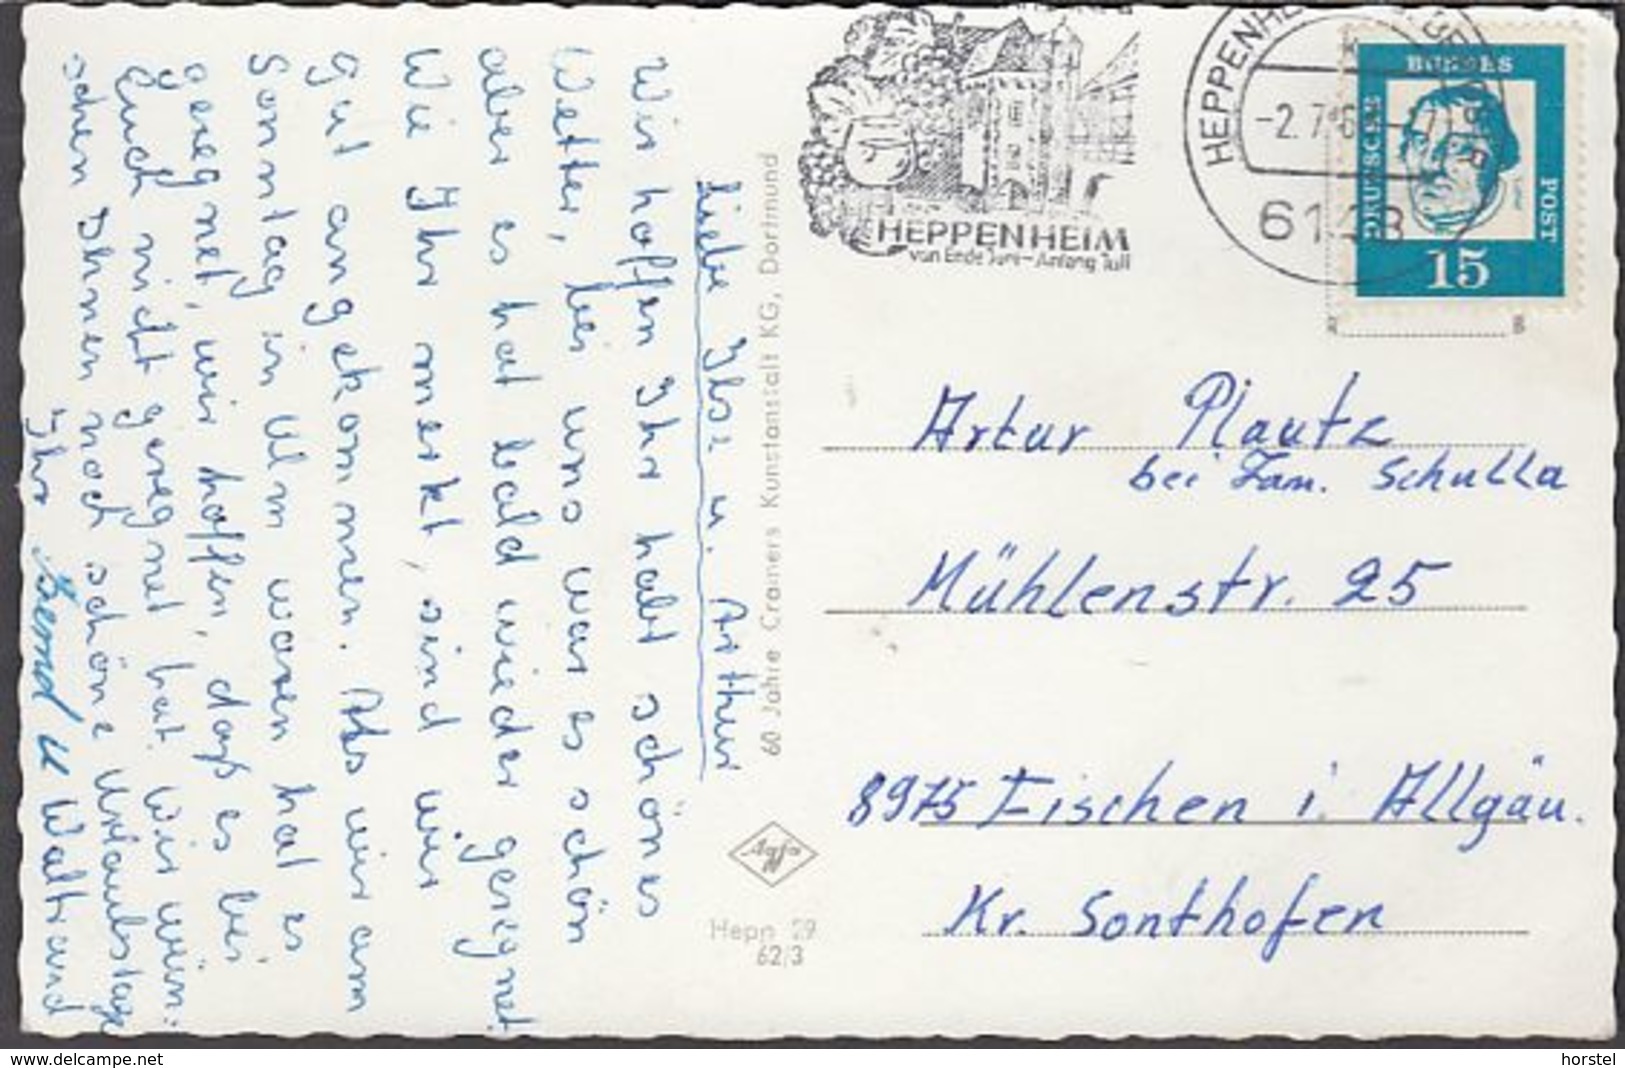 Liebe Ilse u. Arthur
Wir hoffen Ihr habt schönes
Wetter, bei uns war es schön
aber es hat bald wieder geregnet
Wie Ihr merkt, sind wir
gut angekommen. Als wir am
Sonntag in Ulm waren hat es
geregnet, wir hoffen, daß es bei
Euch nicht geregnet hat. Wir wün-
schen Ihnen noch schöne Urlaubstage
Ihr Bernd u Waltraud
60 Jahre Cramers Kunstanstalt KG, Dortmund
Agfa
Hepp 29
62/3
HEPPENHEIM
von Ende Juni - Anfang Juli
HEPPENHEIM
-2.7.6
61
DEUTSCHE
BUNDES
POST
15
Artur Plautz
bei Fam. Schulla
Mühlenstr. 25
8975 Fischen i. Allgäu.
Kr. Sonthofen
www.delcampe.net
horstel